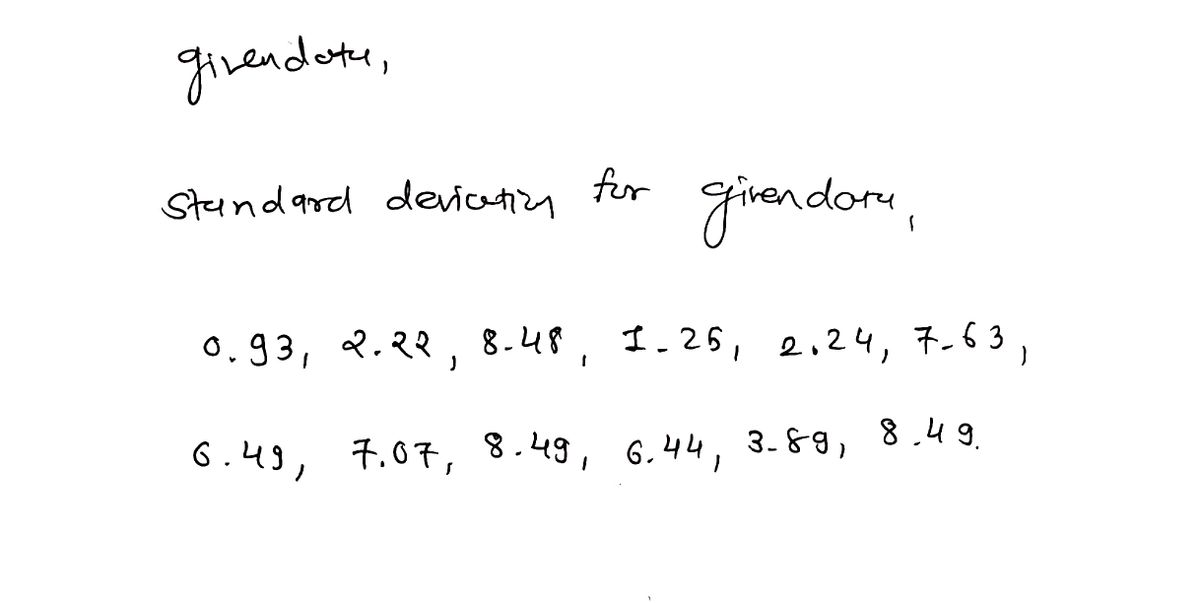 given data,
standard deviation for given data,
0.93, 2.22, 8.48, 1.25, 2.24, 7.63,
6.49, 7.07, 8.49, 6.44, 3.89, 8.49.